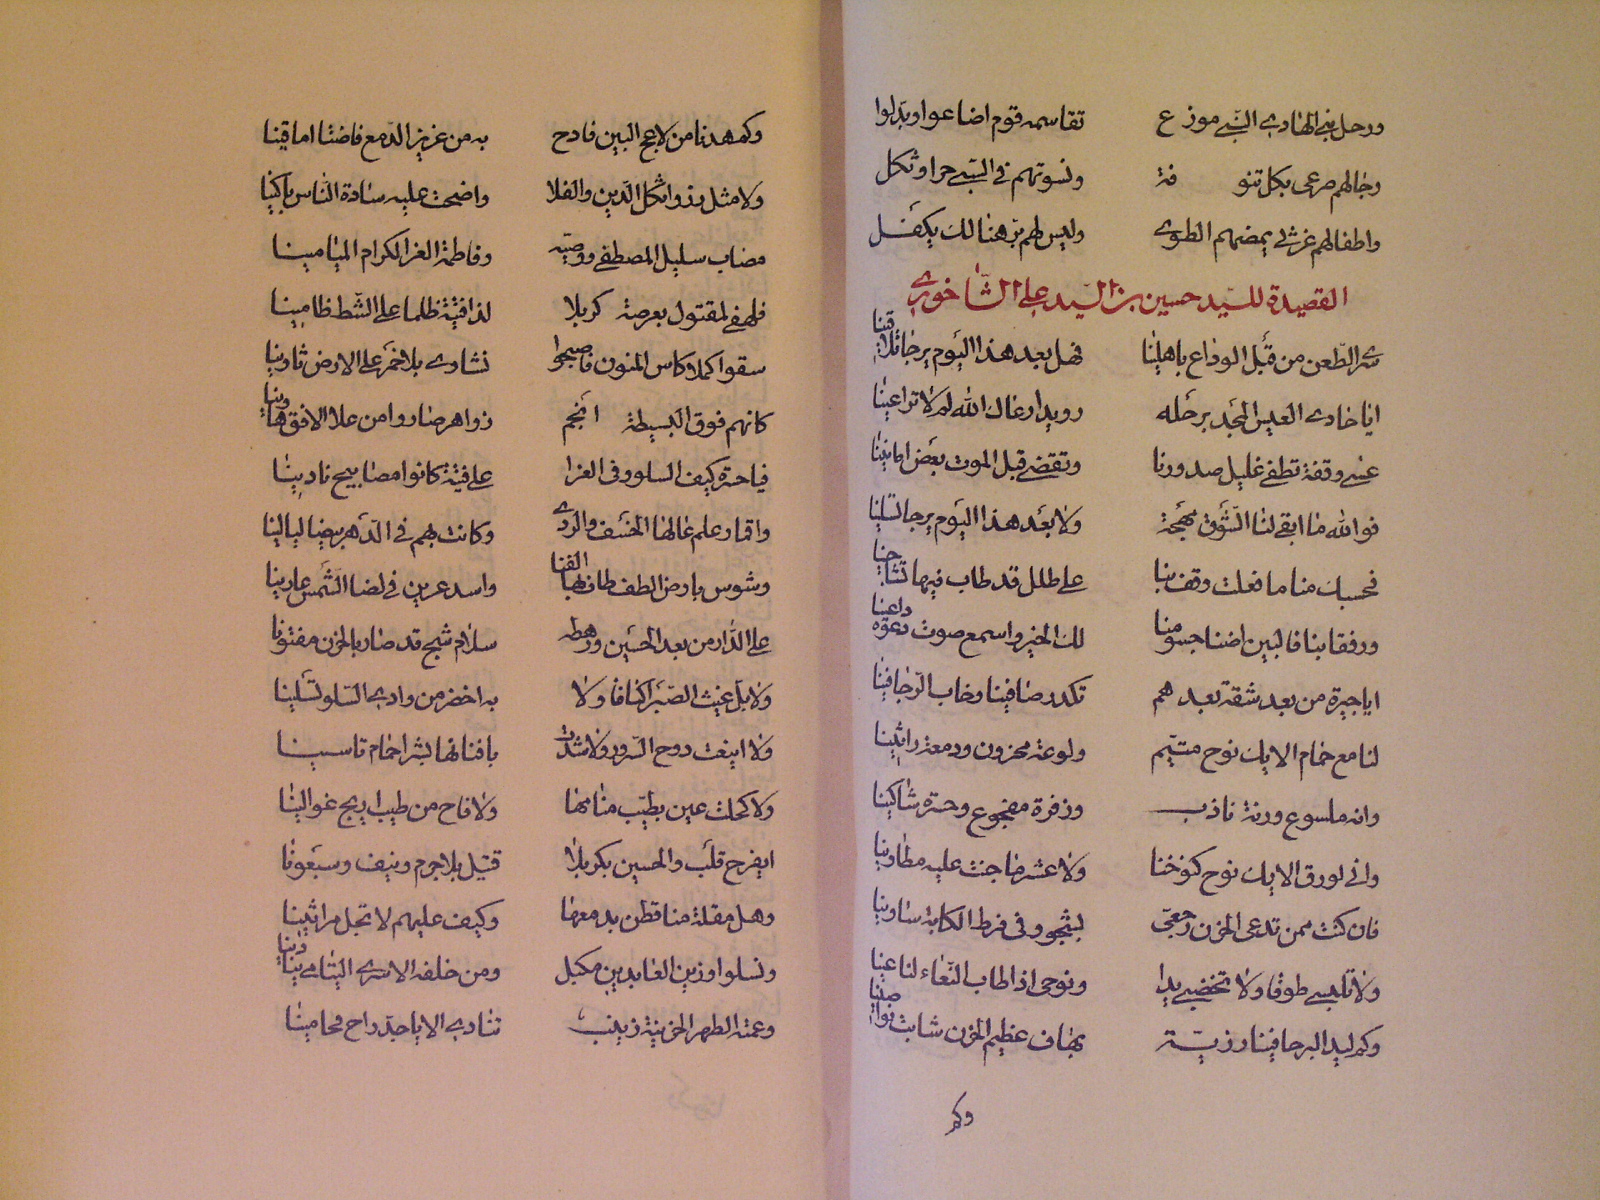 ورحل بني الهادي النبي موزع تقاسمه قوم اضاعوا وبدلوا
رجالهم صرعى بكل تنوفة ونسوتهم في السبي حرا وثكل
واطفالهم غرثى يمضهم الطوى وليس لهم بر هنالك يكفل
القصيدة للسيد حسين بن السيد علي الشاخوري
سرى الظعن من قبل الوداع باهلينا فهل بعد هذا اليوم يرجا تلاقينا
ايا حادي العيس المجد برحله رويدا رعاك الله لم لا تراعينا
عسى وقفة تطفي غليل صدورنا وتقضي قبل الموت بعض امانينا
فوالله ما ابقى لنا الشوق مهجة ولا بعد هذا اليوم يرجا تسلينا
فحسبك منا ما فعلت وقف بنا على طلل قد طاب فيها تناجينا
ورفقا بنا فالبين اضنا جسومنا لك الخير واسمع صوت دعوة داعينا
ايا جيرة من بعد شقة بعدهم تكدر صافينا وخاب الرجا فينا
لنا مع حمام الايك نوح متيم ولوعة محزون ودمعة راثينا
وانة ملسوع ورنة نادب وزفرة مفجوع وحسرة شاكينا
واني لورق الايك نوح كنوحنا ولا عشر ما حنت عليه مطاوينا
فان كنت ممن تدعي الحزن رجعي بشجو وفي فرط الكابة ساوينا
ولا تلبسي طوقا ولا تخضبي يدا ونوحي اذا طاب النعاء لناعينا
وكم ليد البرحا فينا رزية بها من عظيم الحزن شابت نواصينا
وكم
وكم هدنا من لاعج البين فادح به من عزيز الدمع فاضت اماقينا
ولا مثل رزء اثكل الدين والعلا واضحت عليه سادة الناس باكينا
مصاب سليل المصطفى ووصيه وفاطمة الغر الكرام الميامينا
فلهفي لمقتول بعرصة كربلا لدا فتية ظلما على الشط ظامينا
سقوا كملا كاس المنون فاصبحوا نشاوى بلا خمر على الارض ثاوينا
كانهم فوق البسيطة انجم زواهر صاروا من علا الافق هاوينا
فيا حسرة كيف السلو وفي العزا على فتية كانوا مصابيح نادينا
واقمار علم غالها الخسف والردى وكانت بهم في الدهر بيضا ليالينا
وشوس بارض الطف طاف بها الفنا واسد عرين في لضا الشمس عارينا
على الدار من بعد الحسين ورهطه سلام شج قد صار بالحزن مفتونا
ولا بل غيث الصبر اكنافا ولا به اخضر من وادي السلو تسلينا
ولا اينعت دوح السرور ولا شدت بافنانها بشرا حمام تاسينا
ولا كحلت عين بطيب منامها ولا فاح من طيب اريج غوالينا
ايفرح قلب والحسين بكربلا قتيل بلا جرم ونيف وسبعونا
وهل مقلة منا قطن بدمعها وكيف عليهم لا تجل مراثينا
ونسلوا وزين العابدين مكبل ومن خلفه الاسرى اليتامى ينادينا
وعمته الطهر الحزينة زينب تنادي الا يا جد راح محامينا